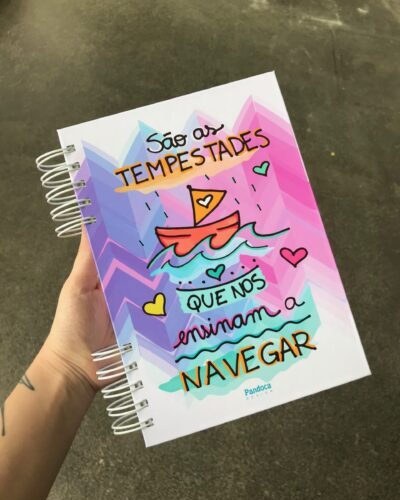 São as
TEMPESTADES
QUE NOS
ensinam a
NAVEGAR
Pandoca
DESIGN